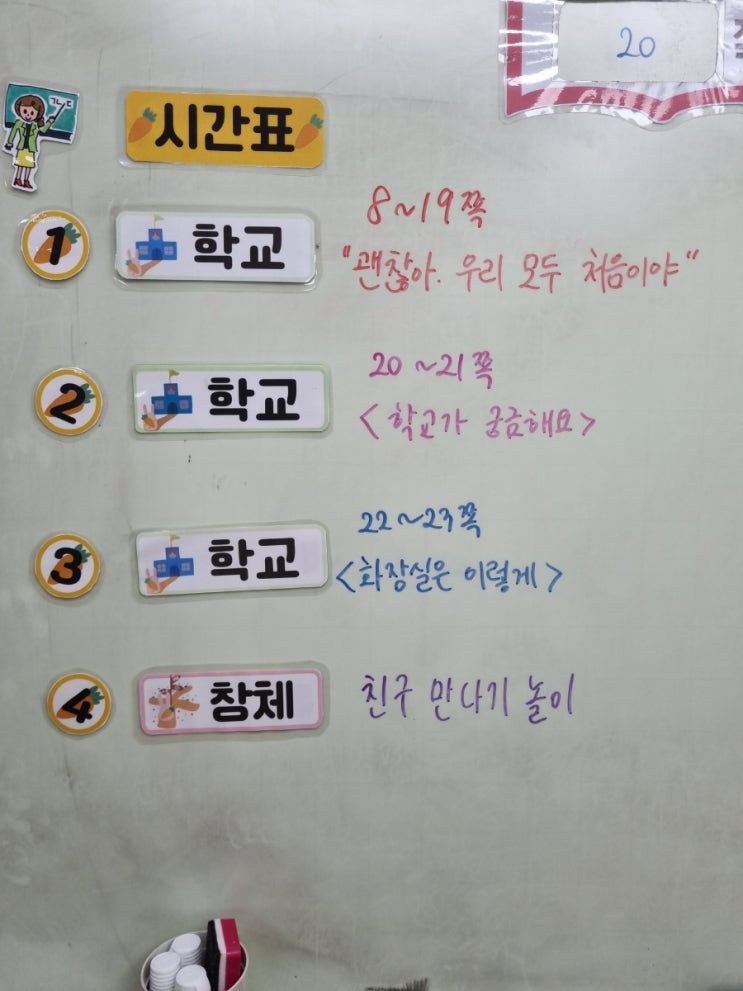 20
ㄱㄴㄷ
시간표
8~19쪽
1 학교 "괜찮아. 우리 모두 처음이야"
20~21쪽
2 학교 <학교가 궁금해요>
22~23쪽
3 학교 <화장실은 이렇게>
4 창체 친구 만나기 놀이